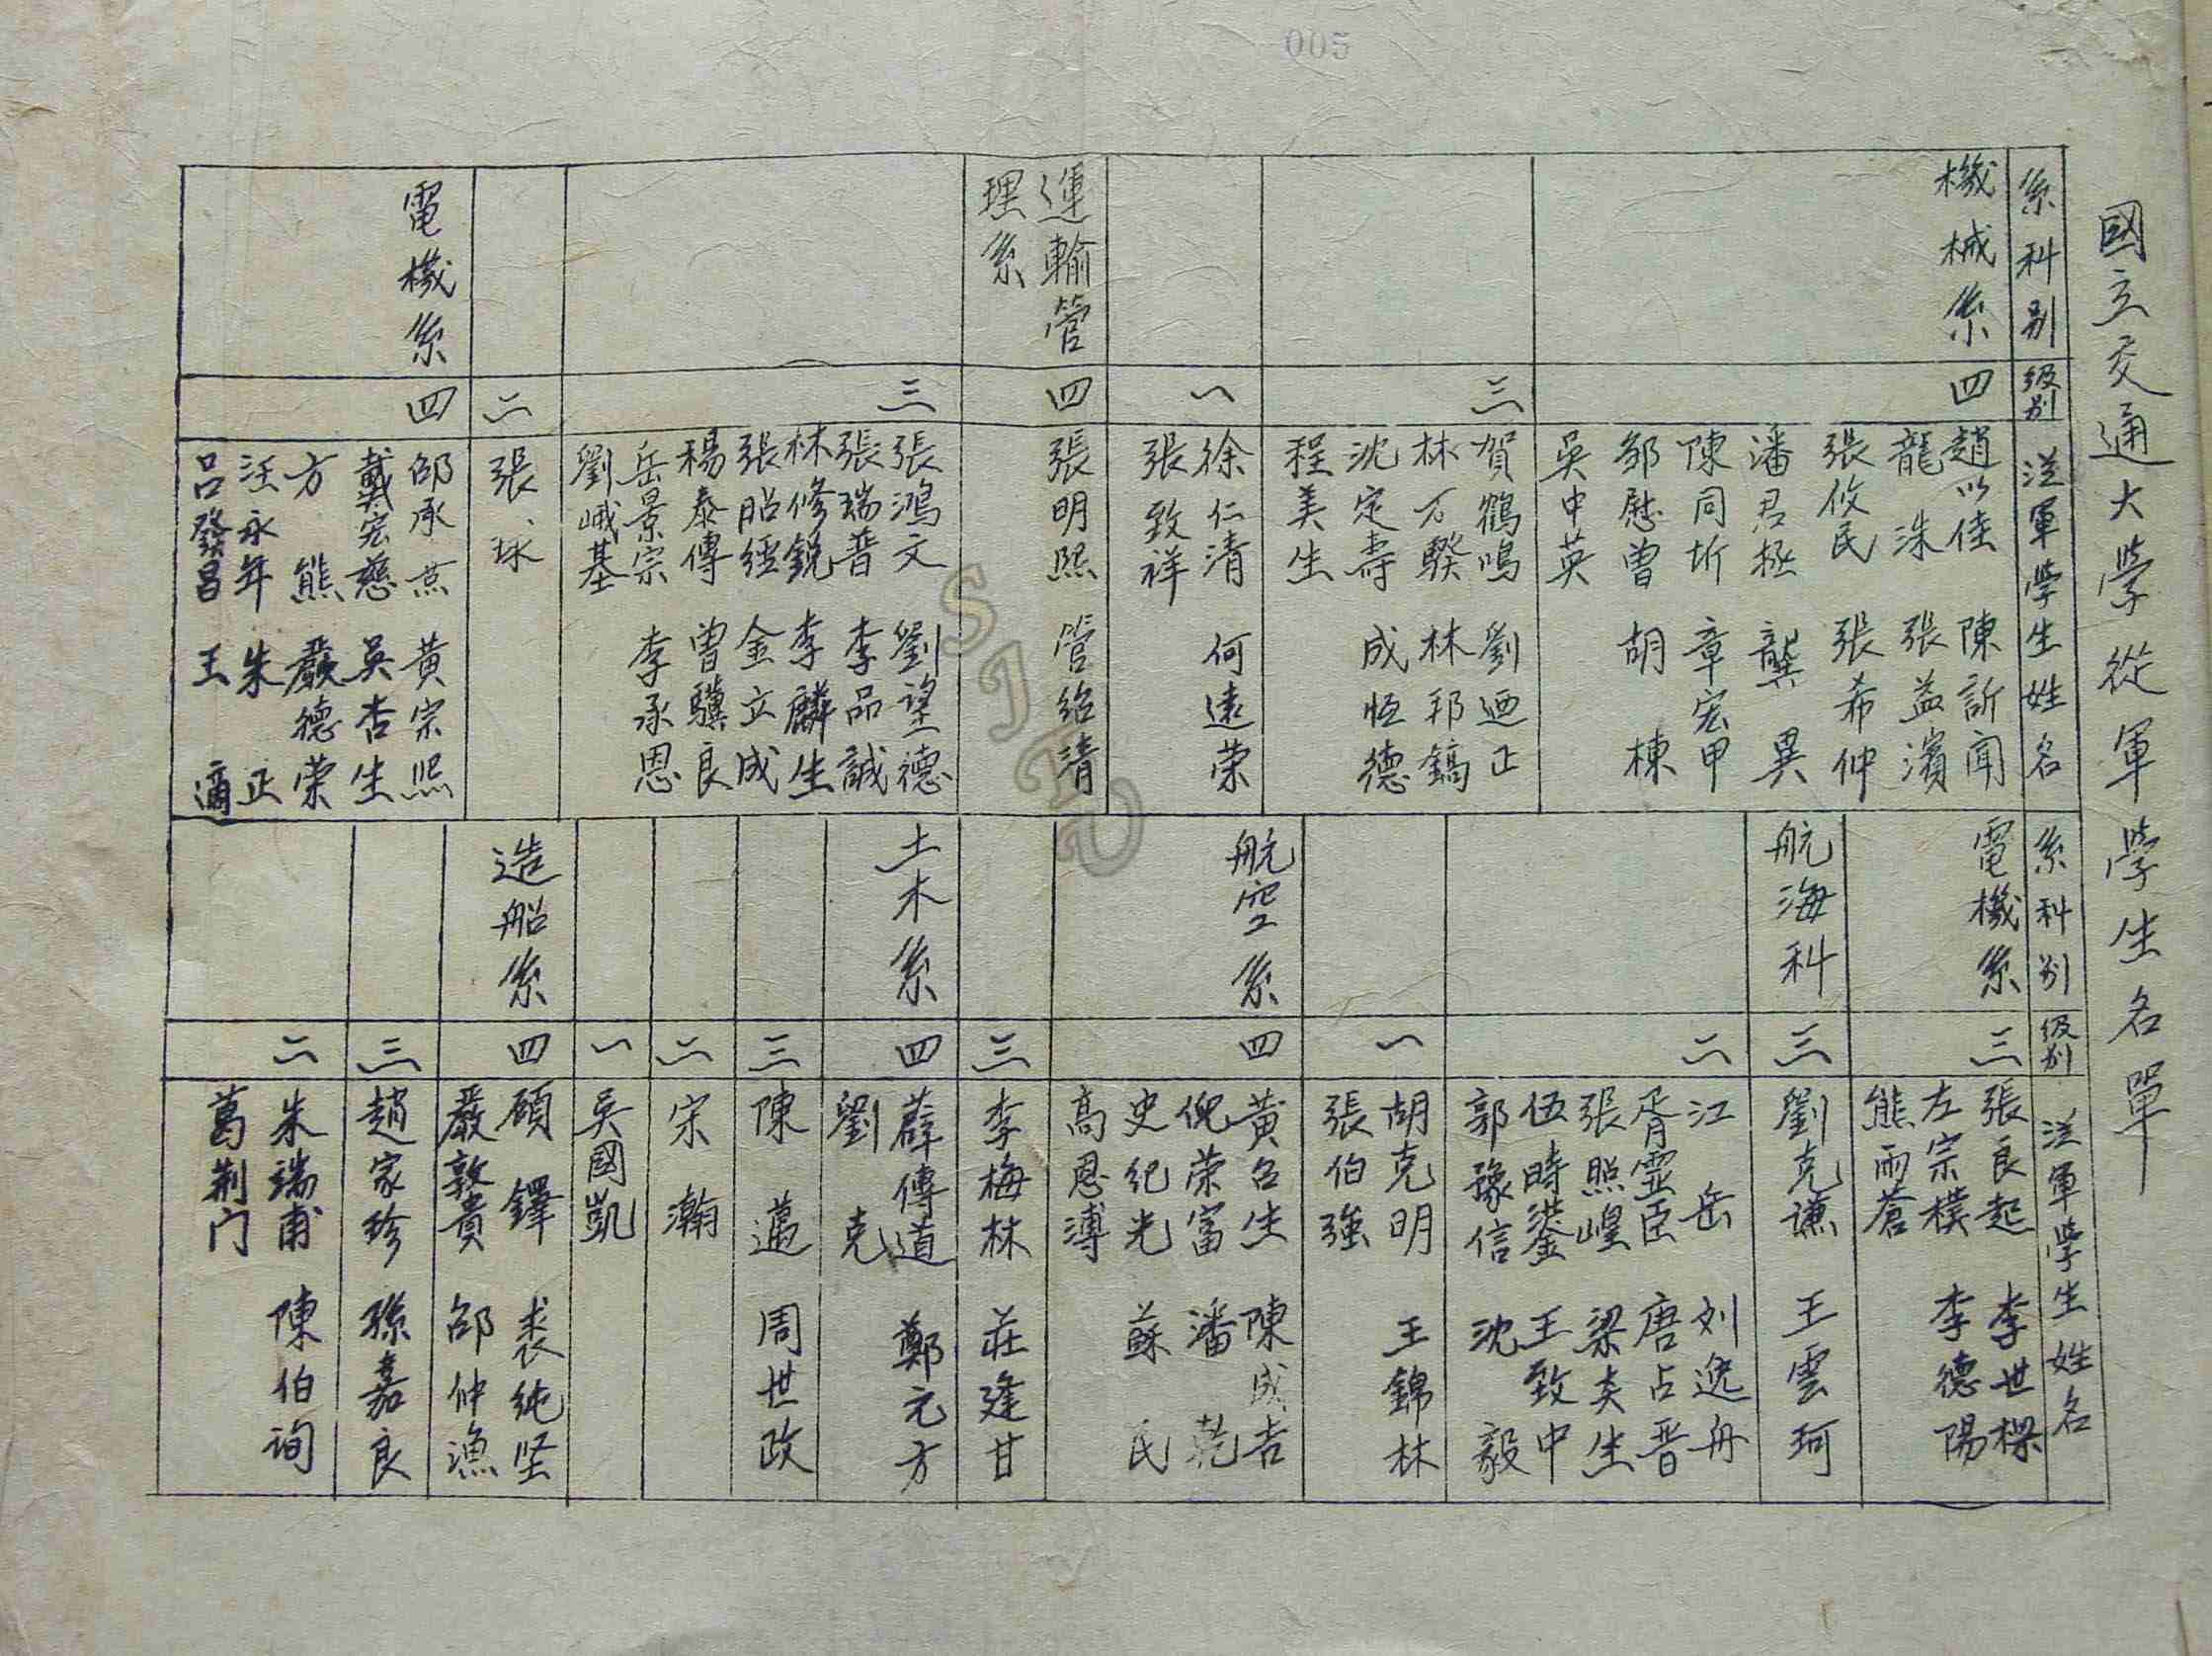 005
國立交通大學從軍學生名單
系科别
级别
從軍學生姓名
機械系
四
趙以佳 陳訢聞
龍洙 張益濱
張攸民 張希仲
潘君極 龔異
陳同圻 章宏甲
邹慰曾 胡棟
吳中英
三
賀鶴鳴 劉迺正
林万騤 林邦鎬
沈定壽 成恒德
程美生
一
徐仁清 何遠荣
張致祥
運輸管
理系
四
張明熙 管紹清
三
張鴻文 劉望德
張瑞晋 李品誠
林修銳 李麟生
張昭經 金立成
楊泰傳 曾驥良
岳景宗 李承恩
劉峨基
二
張球
電機系
四
邵承熹 黄宗熙
戴宏慈 吳杏生
方熊 嚴德荣
汪永年 朱正
吕發昌 王適
系科别
级别
從軍學生姓名
電機系
三
張良起 李世樑
左宗樸 李德陽
熊雨蒼
航海科
三
劉克謙 王雲珂
二
江岳 刘逸舟
胥霊臣 唐占晋
張照煌 梁炎生
伍時 王致中
郭豫信 沈毅
一
胡克明 王錦林
張伯強
航空系
四
黄召生 陳成吉
倪荣富 潘乾
史紀光 蘇民
高恩溥
三
李梅林 莊逢甘
土木系
四
薛傳道 鄭元方
劉克
三
陳邁 周世政
二
宋瀚
一
吳國凱
造船系
四
顾鐸 裘純坚
嚴敦貴 邵仲漁
三
趙家珍 孫嘉良
二
朱瑞甫 陳伯询
葛荆门
SJTU